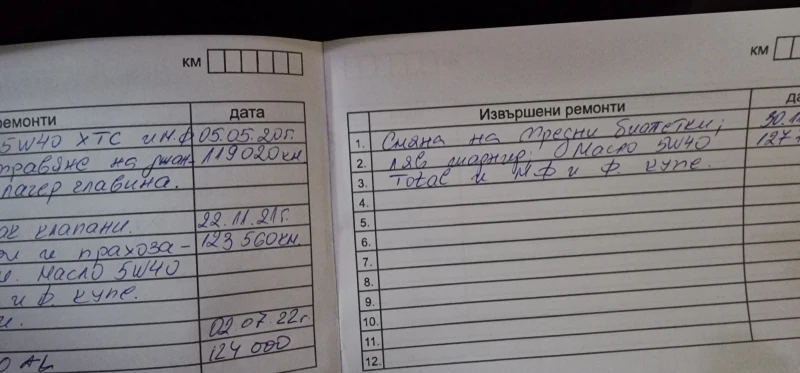 км
ремонти дата
5W40 ХТС и М.Ф 05.05.20г.
правяне на 119020 км
лагер главина.
клапани. 22.11.21г.
и прахоза- 123 560км.
Масло 5W40
и ф. купе.
02.07.22г.
124 000
км
Извършени ремонти
1. Смяна на предни биалетки; 30.1
2. ляв шарнир; Масло 5W40 127
3. Total и М.Ф и Ф. купе.
4.
5.
6.
7.
8.
9.
10.
11.
12.